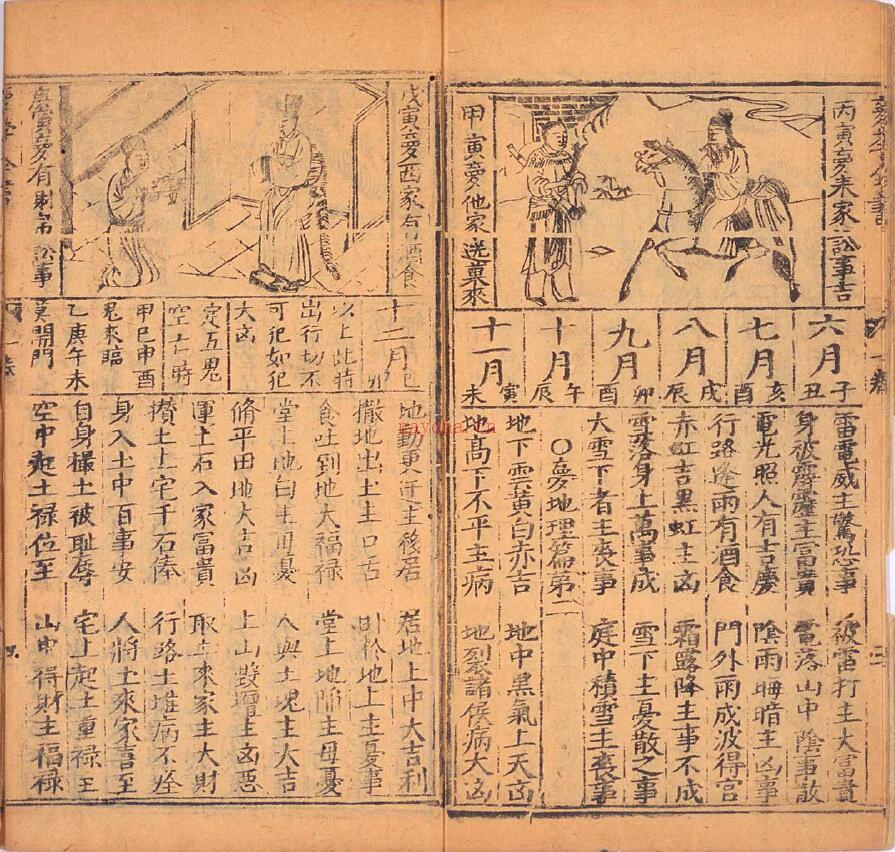 丙寅夢朱家公訟事吉
甲寅夢他家送菓來
六月 子丑
七月 亥酉
八月 戌辰
九月 卯酉
十月 午辰
十一月 寅未
雷電威主驚恐事 被雷打主大富貴
身被霹靂主富貴 電落山中陰事散
電光照人有吉慶 陰雨晦暗主凶事
行路逢雨有酒食 門外雨成波得官
赤虹吉黑虹主凶 霜露降主事不成
雪落身上萬事成 雪下主憂散之事
大雪下者主喪事 庭中積雪主喪事
○夢地理篇第二
地下雲黃白赤吉 地中黑氣上天凶
地高下不平主病 地裂諸侯病大凶
戊寅夢西家有酒食
庚寅夢有刺客訟事
十二月 巳卯
以上此時
出行切不
可犯如犯
大凶
定五鬼
空亡時
甲巳申酉
鬼來臨
乙庚午未
莫開門
地動更遷主移居 居地上中大吉利
撒地出土主口舌 卧於地上主憂事
食吐到地大福祿 堂上地陷主母憂
堂上地白主母憂 人與土塊主大吉
脩平田地大吉凶 上山雙壇主凶惡
運土石入家富貴 取土來家主大財
攢土上宅千石俸 行路土堆病不痊
身入土中百事安 人將土來家喜至
自身撮土被耻辱 宅上起土重祿至
空中起土祿位至 山中得財主福祿